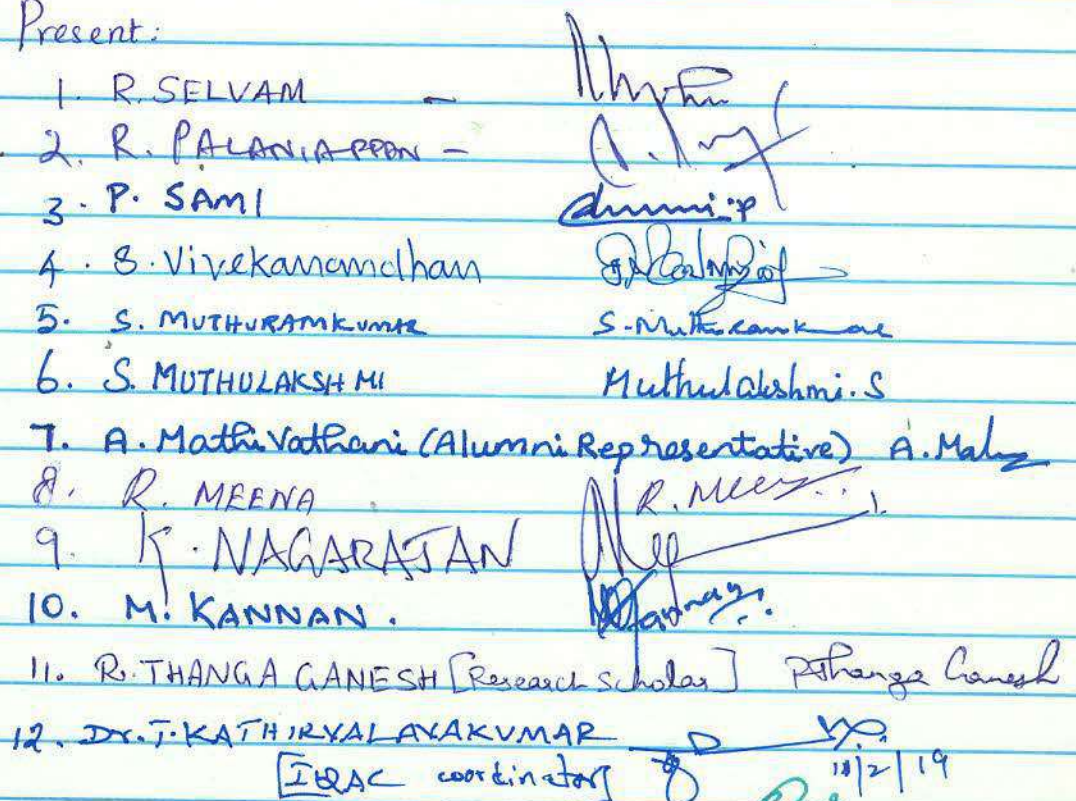 Present:
1. R. SELVAM -
2. R. PALANIAPPAN -
3. P. SAMI
4. S. Vivekanandhan
5. S. MUTHURAMKUMAR S. Muthuramkumar
6. S. MUTHULAKSHMI Muthulakshmi.S
7. A. MathiVathani (Alumni Representative) A.
8. R. MEENA R. Meena
9. K. NAGARAJAN
10. M. KANNAN.
11. R. THANGA GANESH [Research scholar] R. Thanga Ganesh
12. Dr. T. KATHIRVALAVAKUMAR
[IQAC coordinator] /2/19